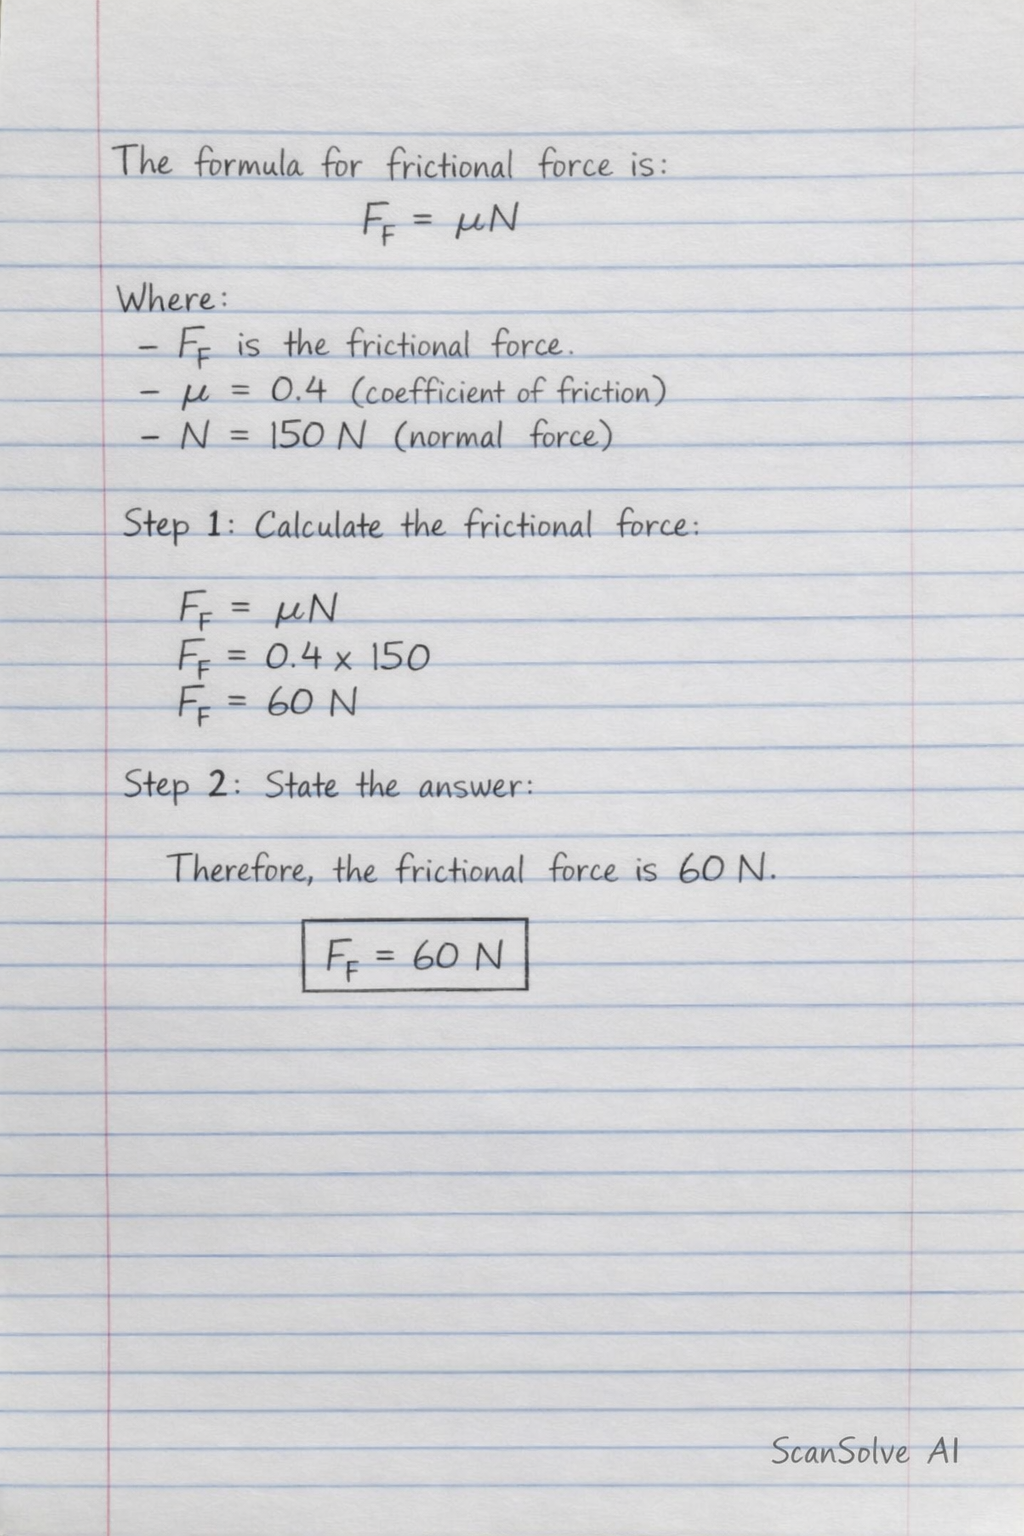 The formula for frictional force is:
F_F = μN
Where:
– F_F is the frictional force.
– μ = 0.4 (coefficient of friction)
– N = 150 N (normal force)
Step 1: Calculate the frictional force:
F_F = μN
F_F = 0.4 x 150
F_F = 60 N
Step 2: State the answer:
Therefore, the frictional force is 60 N.
F_F = 60 N
ScanSolve AI